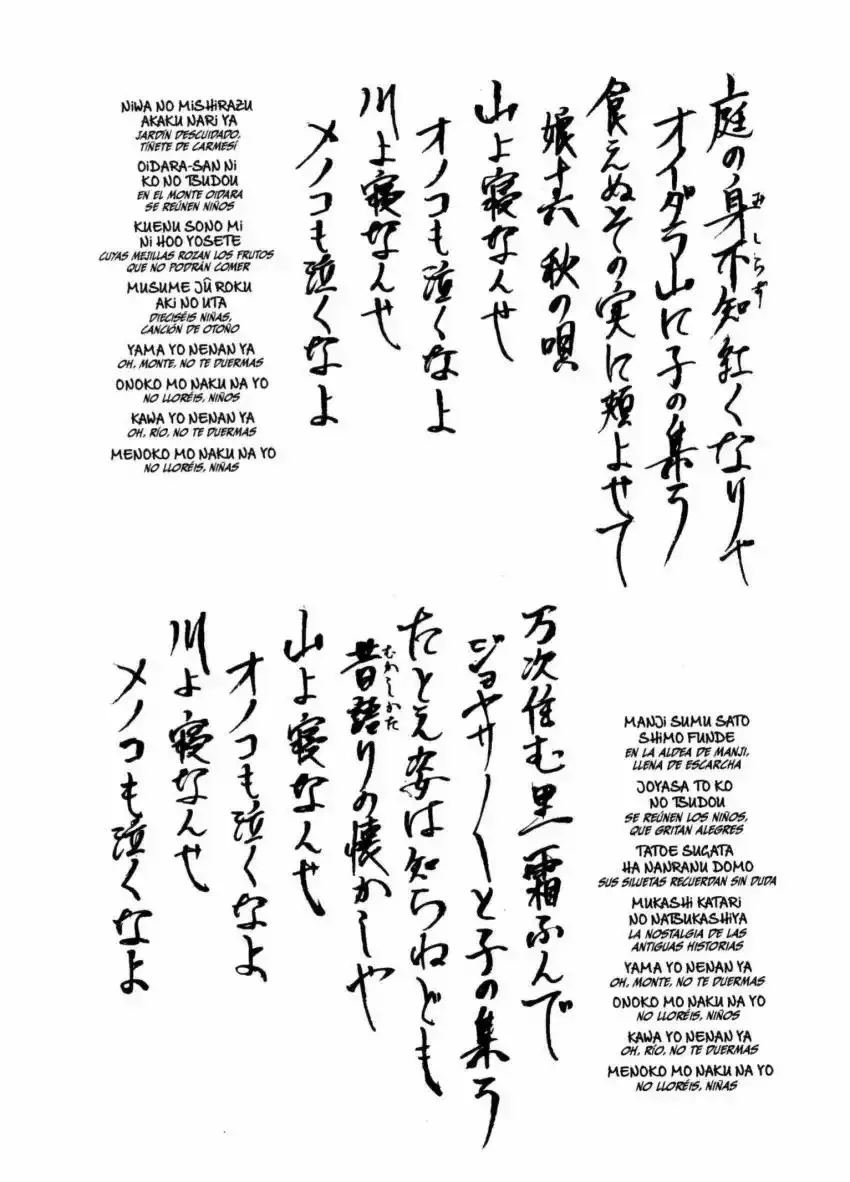 庭の身不知紅くなりや
みしらず
オイダラ山に子の集う
食えぬその実に頬よせて
娘十六 秋の唄
山よ寝なんせ
オノコも泣くなよ
川よ寝なんせ
メノコも泣くなよ
NIWA NO MISHIRAZU
AKAKU NARI YA
JARDÍN DESCUIDADO,
TÍÑETE DE CARMESÍ
OIDARA-SAN NI
KO NO TSUDOU
EN EL MONTE OIDARA
SE REÚNEN NIÑOS
KUENU SONO MI
NI HOO YOSETE
CUYAS MEJILLAS ROZAN LOS FRUTOS
QUE NO PODRÁN COMER
MUSUME JÛ ROKU
AKI NO UTA
DIECISÉIS NIÑAS,
CANCIÓN DE OTOÑO
YAMA YO NENAN YA
OH, MONTE, NO TE DUERMAS
ONOKO MO NAKU NA YO
NO LLORÉIS, NIÑOS
KAWA YO NENAN YA
OH, RÍO, NO TE DUERMAS
MENOKO MO NAKU NA YO
NO LLORÉIS, NIÑAS
万次住む里霜ふんで
ジョヤサノーと子の集う
たとえ姿は知らねども
昔語りの懐かしや
むかしかた
山よ寝なんせ
オノコも泣くなよ
川よ寝なんせ
メノコも泣くなよ
MANJI SUMU SATO
SHIMO FUNDE
EN LA ALDEA DE MANJI,
LLENA DE ESCARCHA
JOYASA TO KO
NO TSUDOU
SE REÚNEN LOS NIÑOS,
QUE GRITAN ALEGRES
TATOE SUGATA
HA NANRANU DOMO
SUS SILUETAS RECUERDAN SIN DUDA
MUKASHI KATARI
NO NATSUKASHIYA
LA NOSTALGIA DE LAS
ANTIGUAS HISTORIAS
YAMA YO NENAN YA
OH, MONTE, NO TE DUERMAS
ONOKO MO NAKU NA YO
NO LLORÉIS, NIÑOS
KAWA YO NENAN YA
OH, RÍO, NO TE DUERMAS
MENOKO MO NAKU NA YO
NO LLORÉIS, NIÑAS